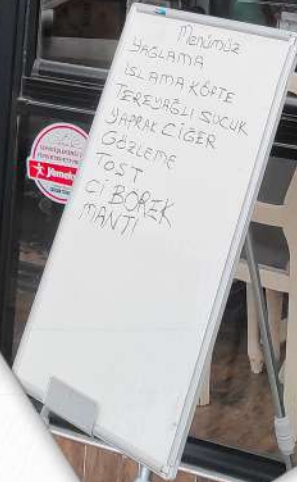 Menümüz
YAĞLAMA
ISLAMA KÖFTE
TEREYAĞLI SUCUK
YAPRAK CİĞER
GÖZLEME
TOST
Cİ BÖREK
MANTI
Yemek